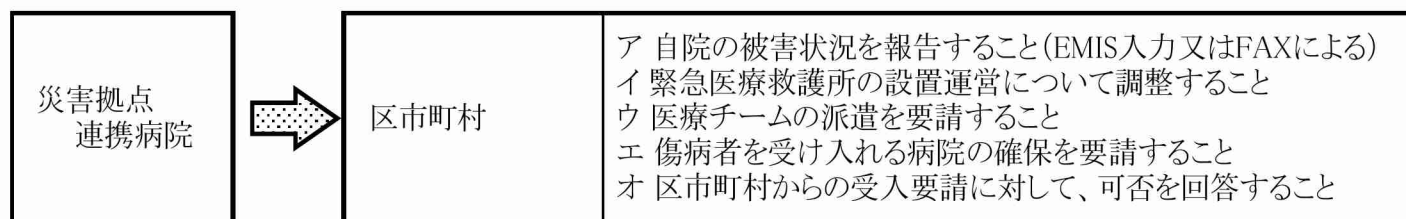 災害拠点
連携病院
区市町村
ア 自院の被害状況を報告すること(EMIS入力又はFAXによる)
イ 緊急医療救護所の設置運営について調整すること
ウ 医療チームの派遣を要請すること
エ 傷病者を受け入れる病院の確保を要請すること
オ 区市町村からの受入要請に対して、可否を回答すること